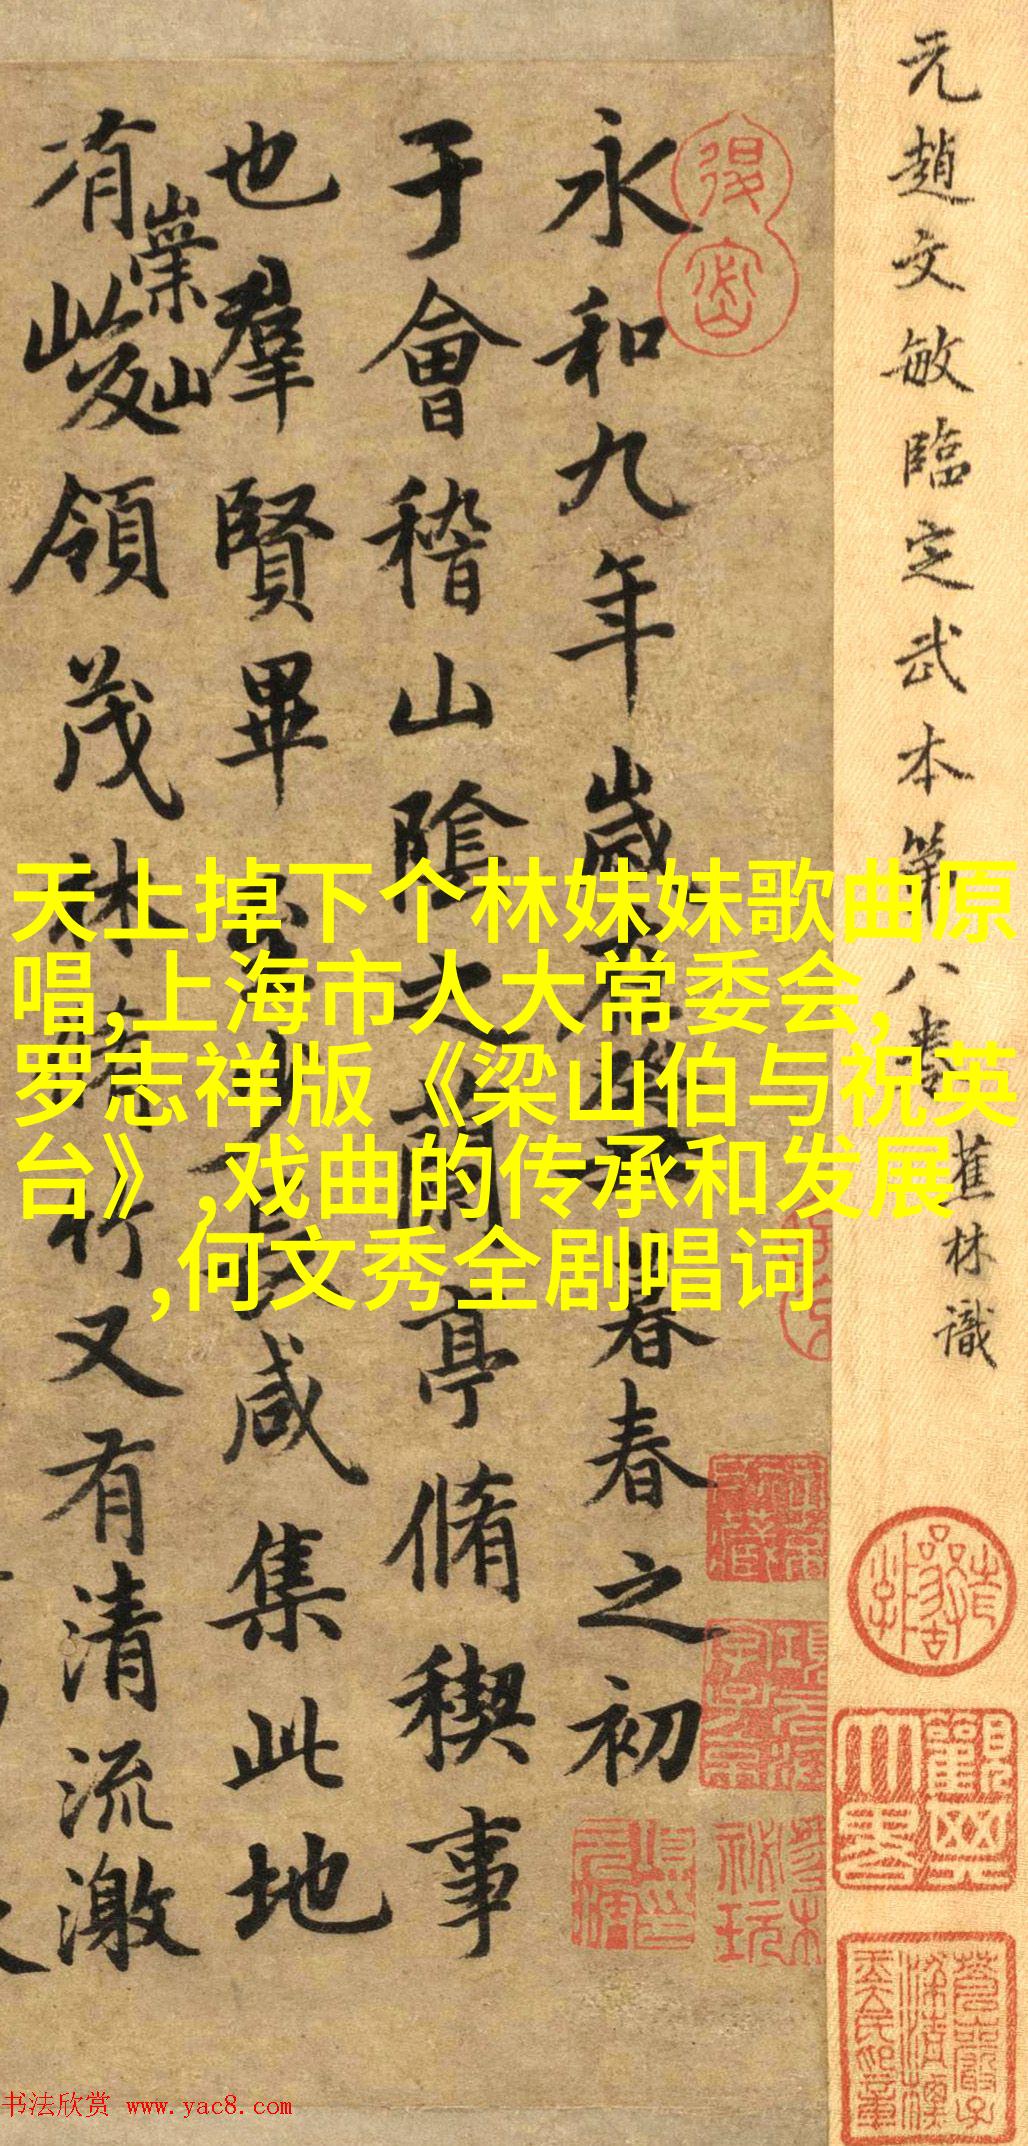 元趙文敏臨定武本第八
蕉林識
永和九年歲在癸丑暮春之初
于會稽山陰之蘭亭脩稧事
也羣賢畢至少長咸集此地
有崇山峻領茂林脩竹又有清流激
天上掉下个林妹妹歌曲原
唱,上海市人大常委会,
罗志祥版《梁山伯与祝英
台》,戏曲的传承和发展
,何文秀全剧唱词
书法欣赏 www.yac8.com